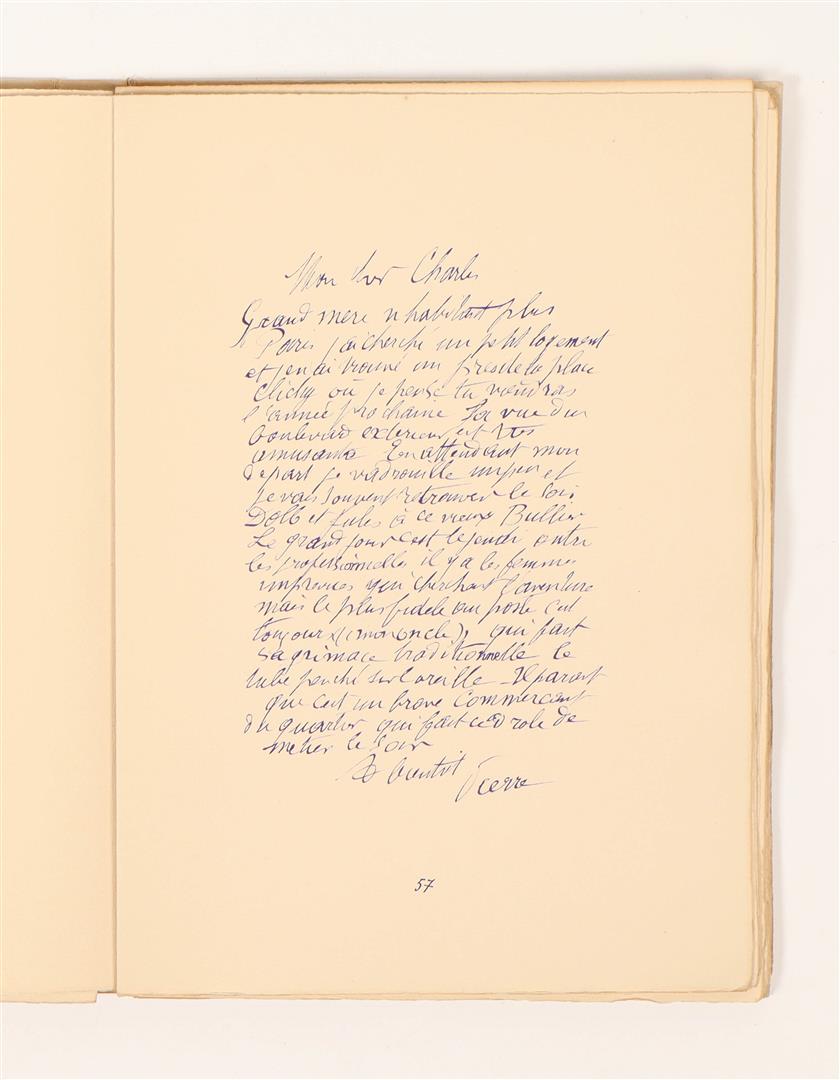 Mon cher Charles
Grand mere n habitant plus
Paris j ai cherché un petit logement
et j en ai trouvé un pres de la place
Clichy où je pense tu viendras
l année prochaine La vue d un
boulevard exterieur est tres
amusante En attendant mon
depart je vadrouille un peu et
je vais souvent retrouver le soir
et Jules à ce vieux Bullier
Le grand jour c est le jeudi outre
les professionnelles il y a les femmes
qui cherchent l aventure
mais le plus fidele au poste c est
toujours (mon oncle), qui fait
sa grimace traditionnelle le
tube penché sur l oreille – Il parait
que c est un brave commercant
du quartier qui fait ce drole de
metier le soir
A bientot Pierre
57